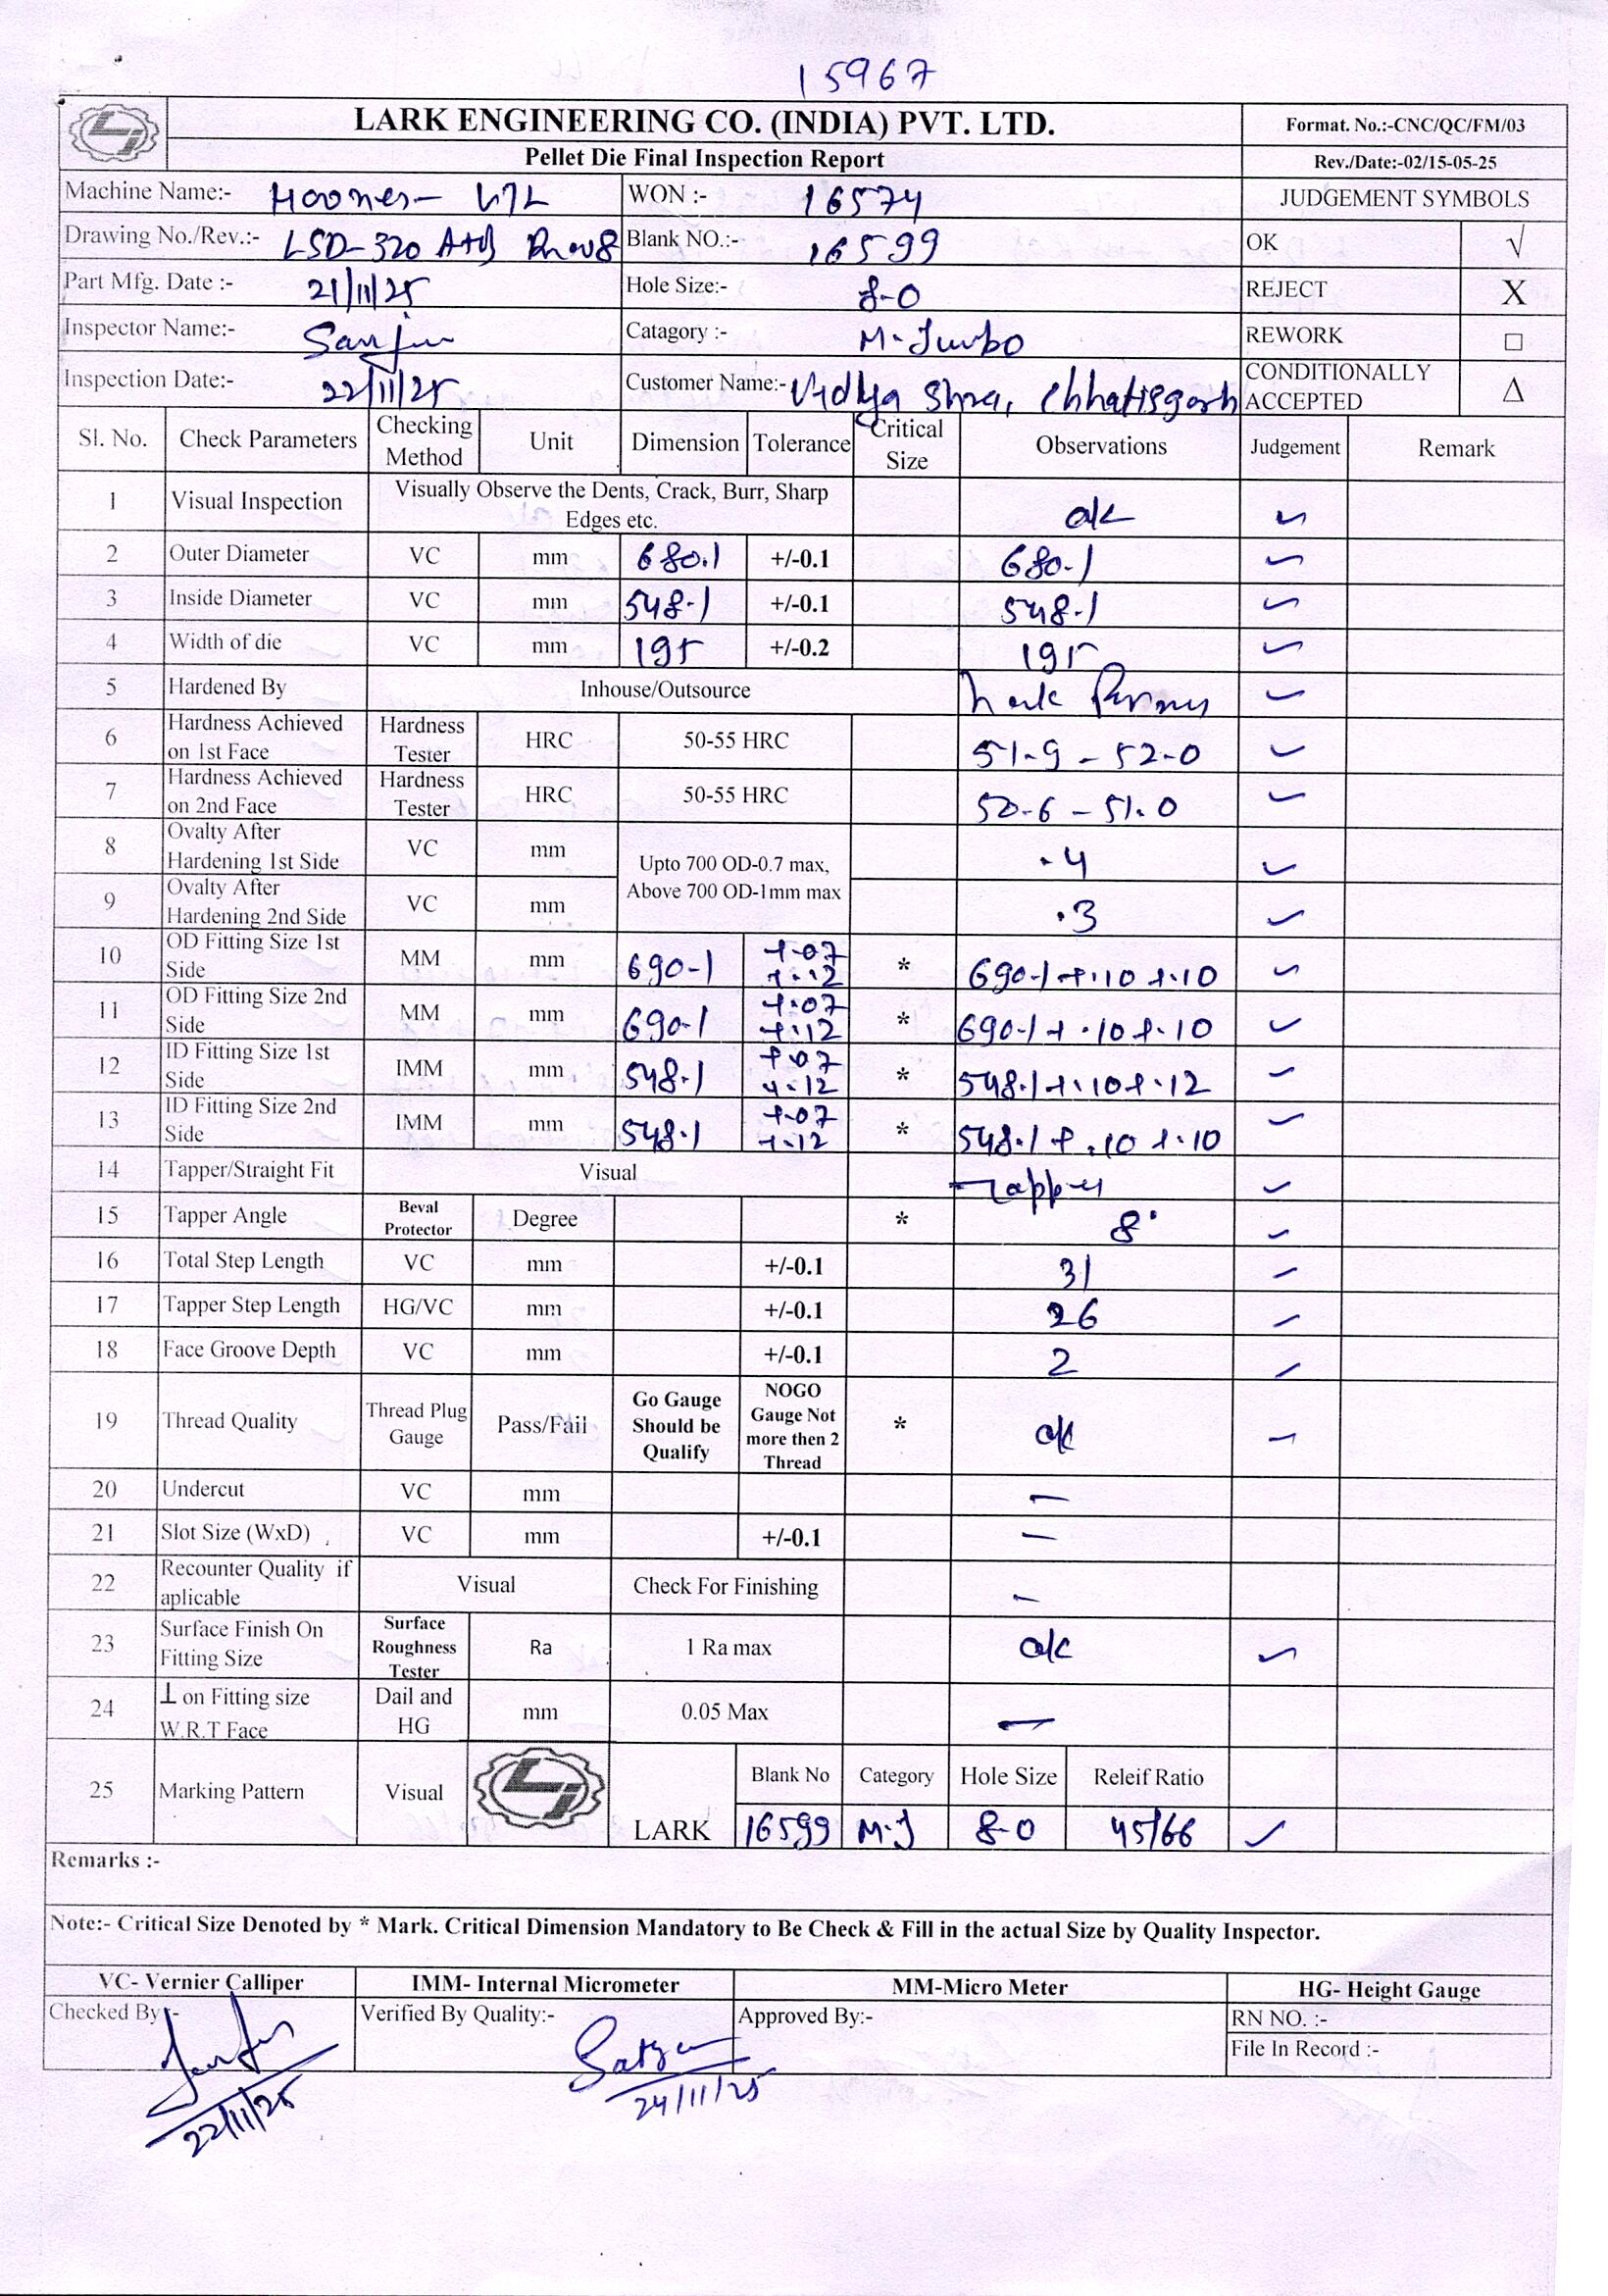 15967
LARK ENGINEERING CO. (INDIA) PVT. LTD. Format. No.:-CNC/QC/FM/03
Pellet Die Final Inspection Report Rev./Date:-02/15-05-25
Machine Name:- WON :- 16574 JUDGEMENT SYMBOLS
Drawing No./Rev.:- LSD-320 Blank NO.:- 16599 OK √
Part Mfg. Date :- 21/11/25 Hole Size:- 8-0 REJECT X
Inspector Name:- Catagory :- M-Jumbo REWORK □
Inspection Date:- 22/11/25 Customer Name:- Vidhya Shree, Chhatisgarh CONDITIONALLY ACCEPTED Δ
Sl. No. Check Parameters Checking Method Unit Dimension Tolerance Critical Size Observations Judgement Remark
1 Visual Inspection Visually Observe the Dents, Crack, Burr, Sharp Edges etc. o/k ✓
2 Outer Diameter VC mm 680.1 +/-0.1 680-1 ✓
3 Inside Diameter VC mm 548-1 +/-0.1 548-1 ✓
4 Width of die VC mm 195 +/-0.2 195 ✓
5 Hardened By Inhouse/Outsource Lark ✓
6 Hardness Achieved on 1st Face Hardness Tester HRC 50-55 HRC 51-9 - 52-0 ✓
7 Hardness Achieved on 2nd Face Hardness Tester HRC 50-55 HRC 50-6 - 51.0 ✓
8 Ovalty After Hardening 1st Side VC mm Upto 700 OD-0.7 max, Above 700 OD-1mm max .4 ✓
9 Ovalty After Hardening 2nd Side VC mm .3 ✓
10 OD Fitting Size 1st Side MM mm 690-1 +.07 +.12 * 690-1 +.10 +.10 ✓
11 OD Fitting Size 2nd Side MM mm 690-1 +.07 +.12 * 690-1 +.10 +.10 ✓
12 ID Fitting Size 1st Side IMM mm 548.1 +.07 +.12 * 548.1 +.10 +.12 ✓
13 ID Fitting Size 2nd Side IMM mm 548.1 +.07 +.12 * 548.1 +.10 +.10 ✓
14 Tapper/Straight Fit Visual Tapper ✓
15 Tapper Angle Beval Protector Degree * 8° ✓
16 Total Step Length VC mm +/-0.1 31 ✓
17 Tapper Step Length HG/VC mm +/-0.1 26 ✓
18 Face Groove Depth VC mm +/-0.1 2 ✓
19 Thread Quality Thread Plug Gauge Pass/Fail Go Gauge Should be Qualify NOGO Gauge Not more then 2 Thread * o/k ✓
20 Undercut VC mm —
21 Slot Size (WxD) VC mm +/-0.1 —
22 Recounter Quality if aplicable Visual Check For Finishing —
23 Surface Finish On Fitting Size Surface Roughness Tester Ra 1 Ra max o/k ✓
24 ⊥ on Fitting size W.R.T Face Dail and HG mm 0.05 Max —
25 Marking Pattern Visual LARK Blank No Category Hole Size Releif Ratio
16599 M-J 8-0 45/66 ✓
Remarks :-
Note:- Critical Size Denoted by * Mark. Critical Dimension Mandatory to Be Check & Fill in the actual Size by Quality Inspector.
VC- Vernier Calliper IMM- Internal Micrometer MM-Micro Meter HG- Height Gauge
Checked By:- Verified By Quality:- Approved By:- RN NO. :-
File In Record :-
22/11/25 24/11/25